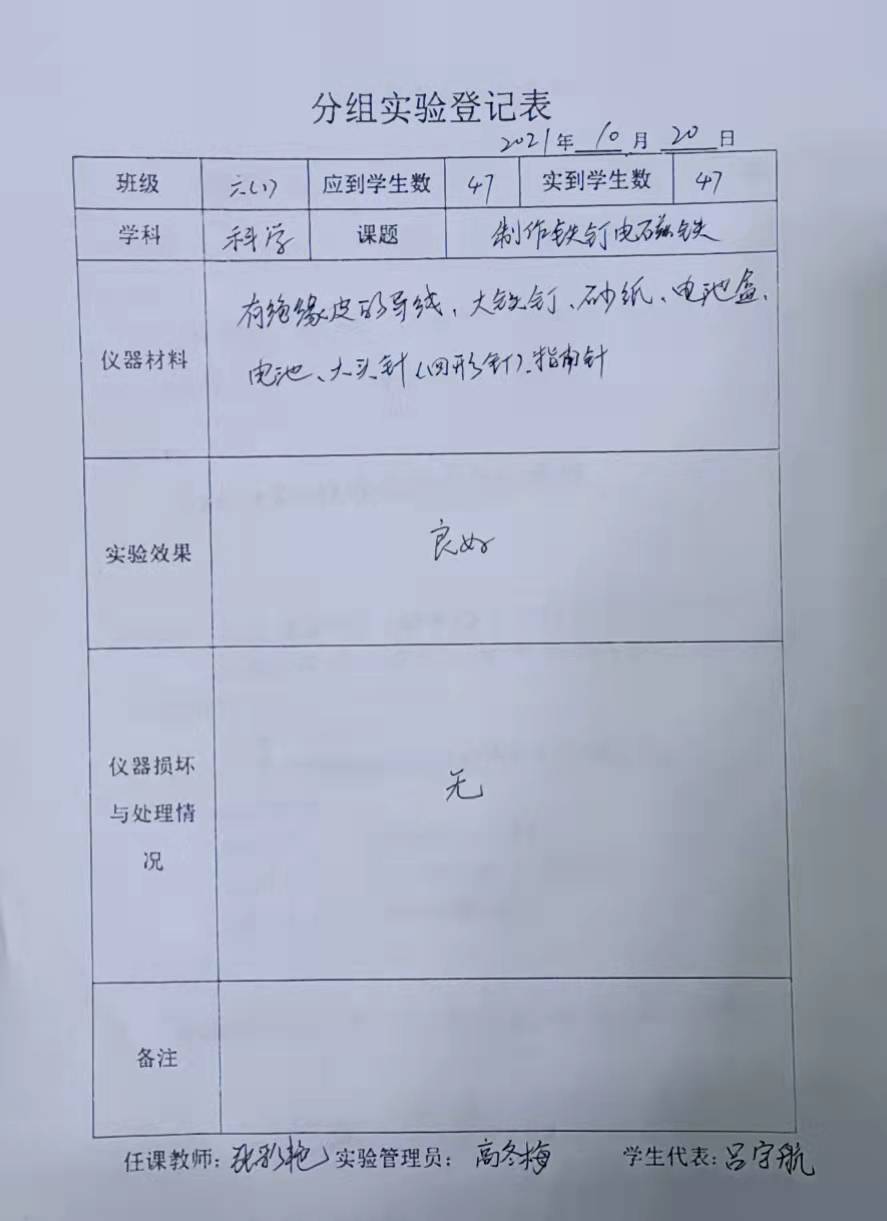 分组实验登记表
2021年 10 月 20 日
班级 六(1) 应到学生数 47 实到学生数 47
学科 科学 课题 制作铁钉电磁铁
有绝缘皮的导线、大铁钉、砂纸、电池盒、
仪器材料
电池、大头针(回形针)、指南针
实验效果 良好
仪器损坏
与处理情
况
无
备注
任课教师:张彩艳 实验管理员: 高冬梅 学生代表:吕宇航